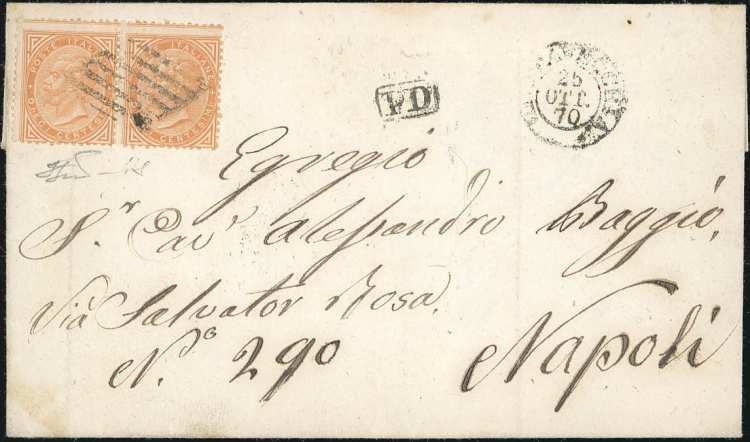 POSTE ITALIANE
DIECI CENTESIMI
CENTESIMI
P.D.
25
OTT.
70
Egregio
S.r Cav.r Alessandro Baggio,
Via Salvator Rosa,
N.o 290
Napoli